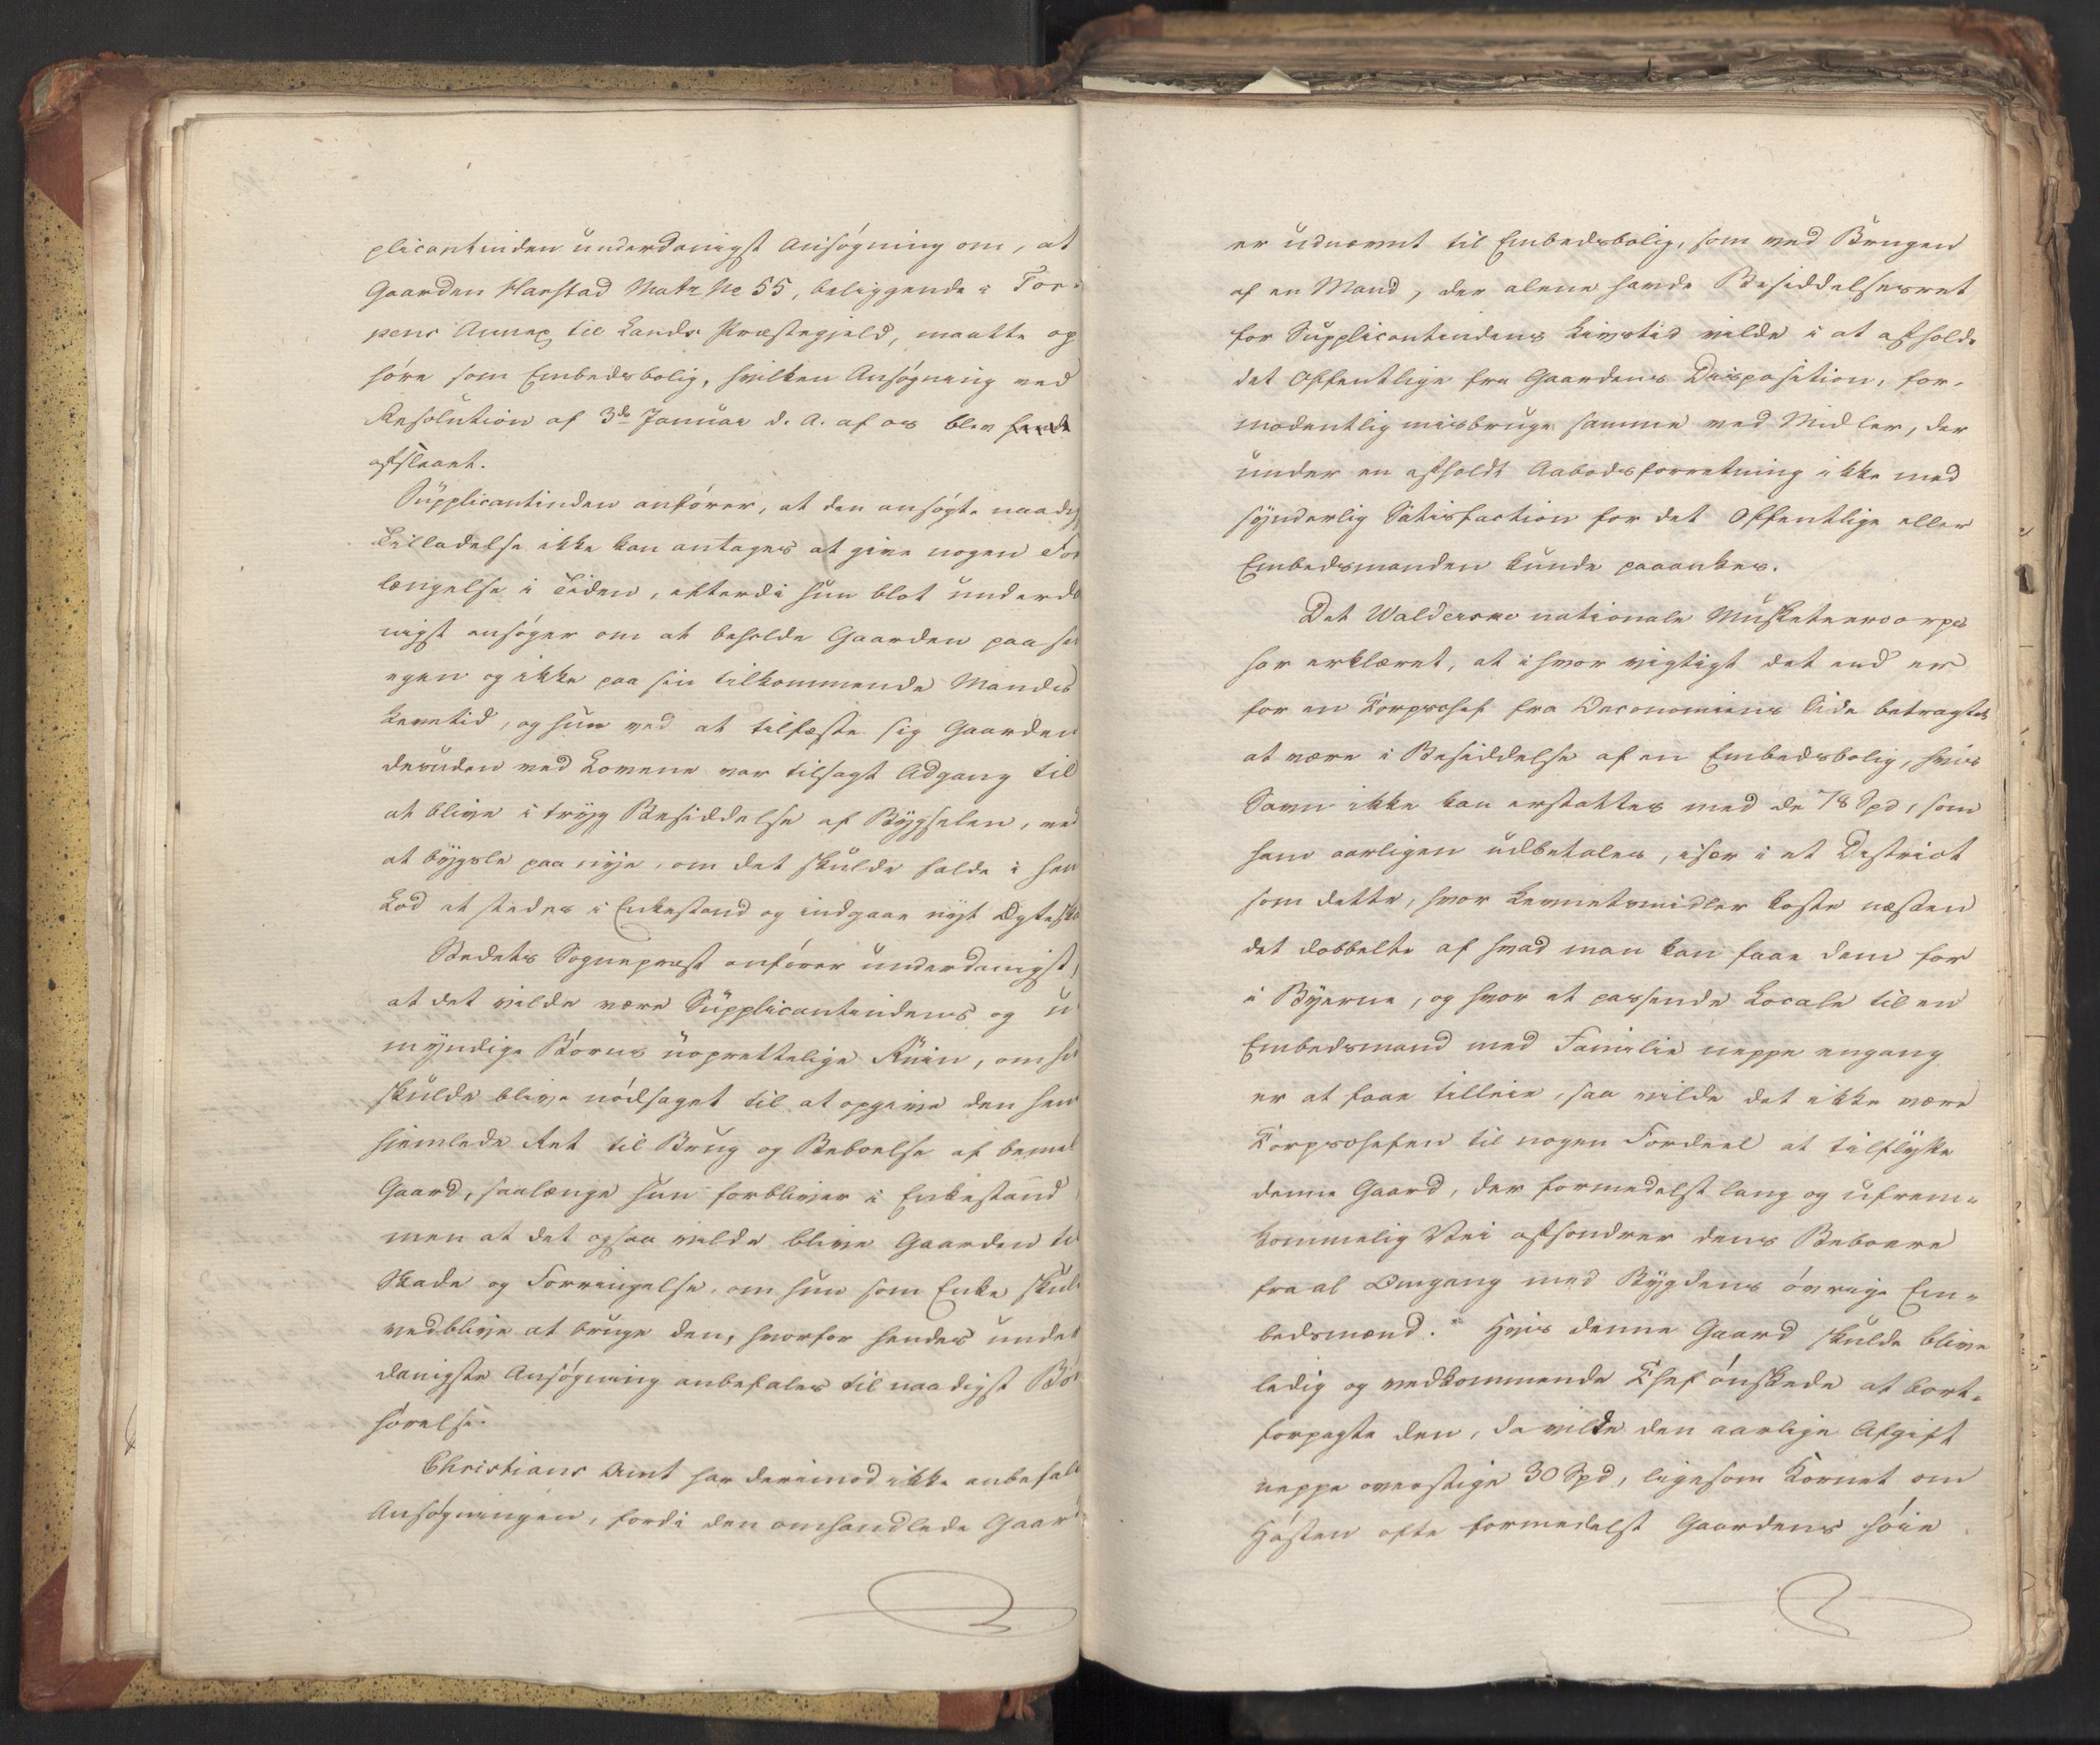 plicantinden underdanigst Ansøgning om, at
Gaarden Harstad Matr No 55, beliggende i Tor-
pens Annex til Lands Præstegjeld, maatte op
høre som Embedsbolig, hvilken Ansøgning ved
Resolution af 3de Januar d. A. af os blev
afslaaet.
Supplicantinden anfører, at den ansøgte naadig
Tilladelse ikke kan antages at give nogen For
længelse i Tiden, efterdi hun blot underda
nigst ansøger om at beholde Gaarden paa sin
egen og ikke paa sin tilkommende Mands
Levetid, og hun ved at tilfæste sig Gaarden
desuden ved Lovene var tilsagt Adgang til
at blive i tryg Besiddelse af Bygselen, ved
at bygsle paa nye, om det skulde falde i hen
Lod at stedes i Enkestand og indgaae nyt Ægtesk
Stedets Sognepræst anfører underdanigst,
at det vilde være Supplicantindens og u
myndige Børns uoprettelige Ruin, om hu
skulde blive nødsaget til at opgive den hen
hjemlede Ret til Brug og Beboelse af bemel
Gaard, saalænge hun forbliver i Enkestand
men at det ogsaa vilde blive Gaarden til
Skade og Forringelse, om hun som Enke skul
vedblive at bruge den, hvorfor hendes under
danigste Ansøgning anbefales til naadigst Bøn
hørelse.
Christians Amt har derimod ikke anbefal
Ansøgningen, fordi den omhandlede Gaard
er udnævnt til Embedsbolig, som ved Brugen
af en Mand, der alene havde Besiddelsesret
for Supplicantindens Livstid vilde i at afholde
det Offentlige fra Gaardens Disposition, for-
modentlig misbruge samme ved Midler, der
under en afholdt Aabodsforretning ikke med
synderlig Satisfaction for det Offentlige eller
Embedsmanden kunde paaankes.
Det Walderske nationale Musketeercorps
har erklæret, at ihvor vigtigt det end er
for en Corpschef fra Oeconomiens Side betragtet
at være i Besiddelse af en Embedsbolig, hvis
Savn ikke kan erstattes med de 78 Spd, som
ham aarligen udbetales, især i et District
som dette, hvor Levnetsmidler koste næsten
det dobbelte af hvad man kan faae dem for
i Byerne, og hvor et passende Locale til en
Embedsmand med Familie neppe engang
er at faae tilleie, saa vilde det ikke være
Corpschefen til nogen Fordeel at tilflytte
denne Gaard, der formedelst lang og ufrem-
kommelig Vei afsondrer dens Beboere
fra al Omgang med Bygdens øvrige Em-
bedsmænd. Hvis denne Gaard skulde blive
ledig og vedkommende Chef ønskede at bort-
forpagte den, da vilde den aarlige Afgift
neppe overstige 30 Spd, ligesom Kornet om
Høsten ofte formedelst Gaardens høie